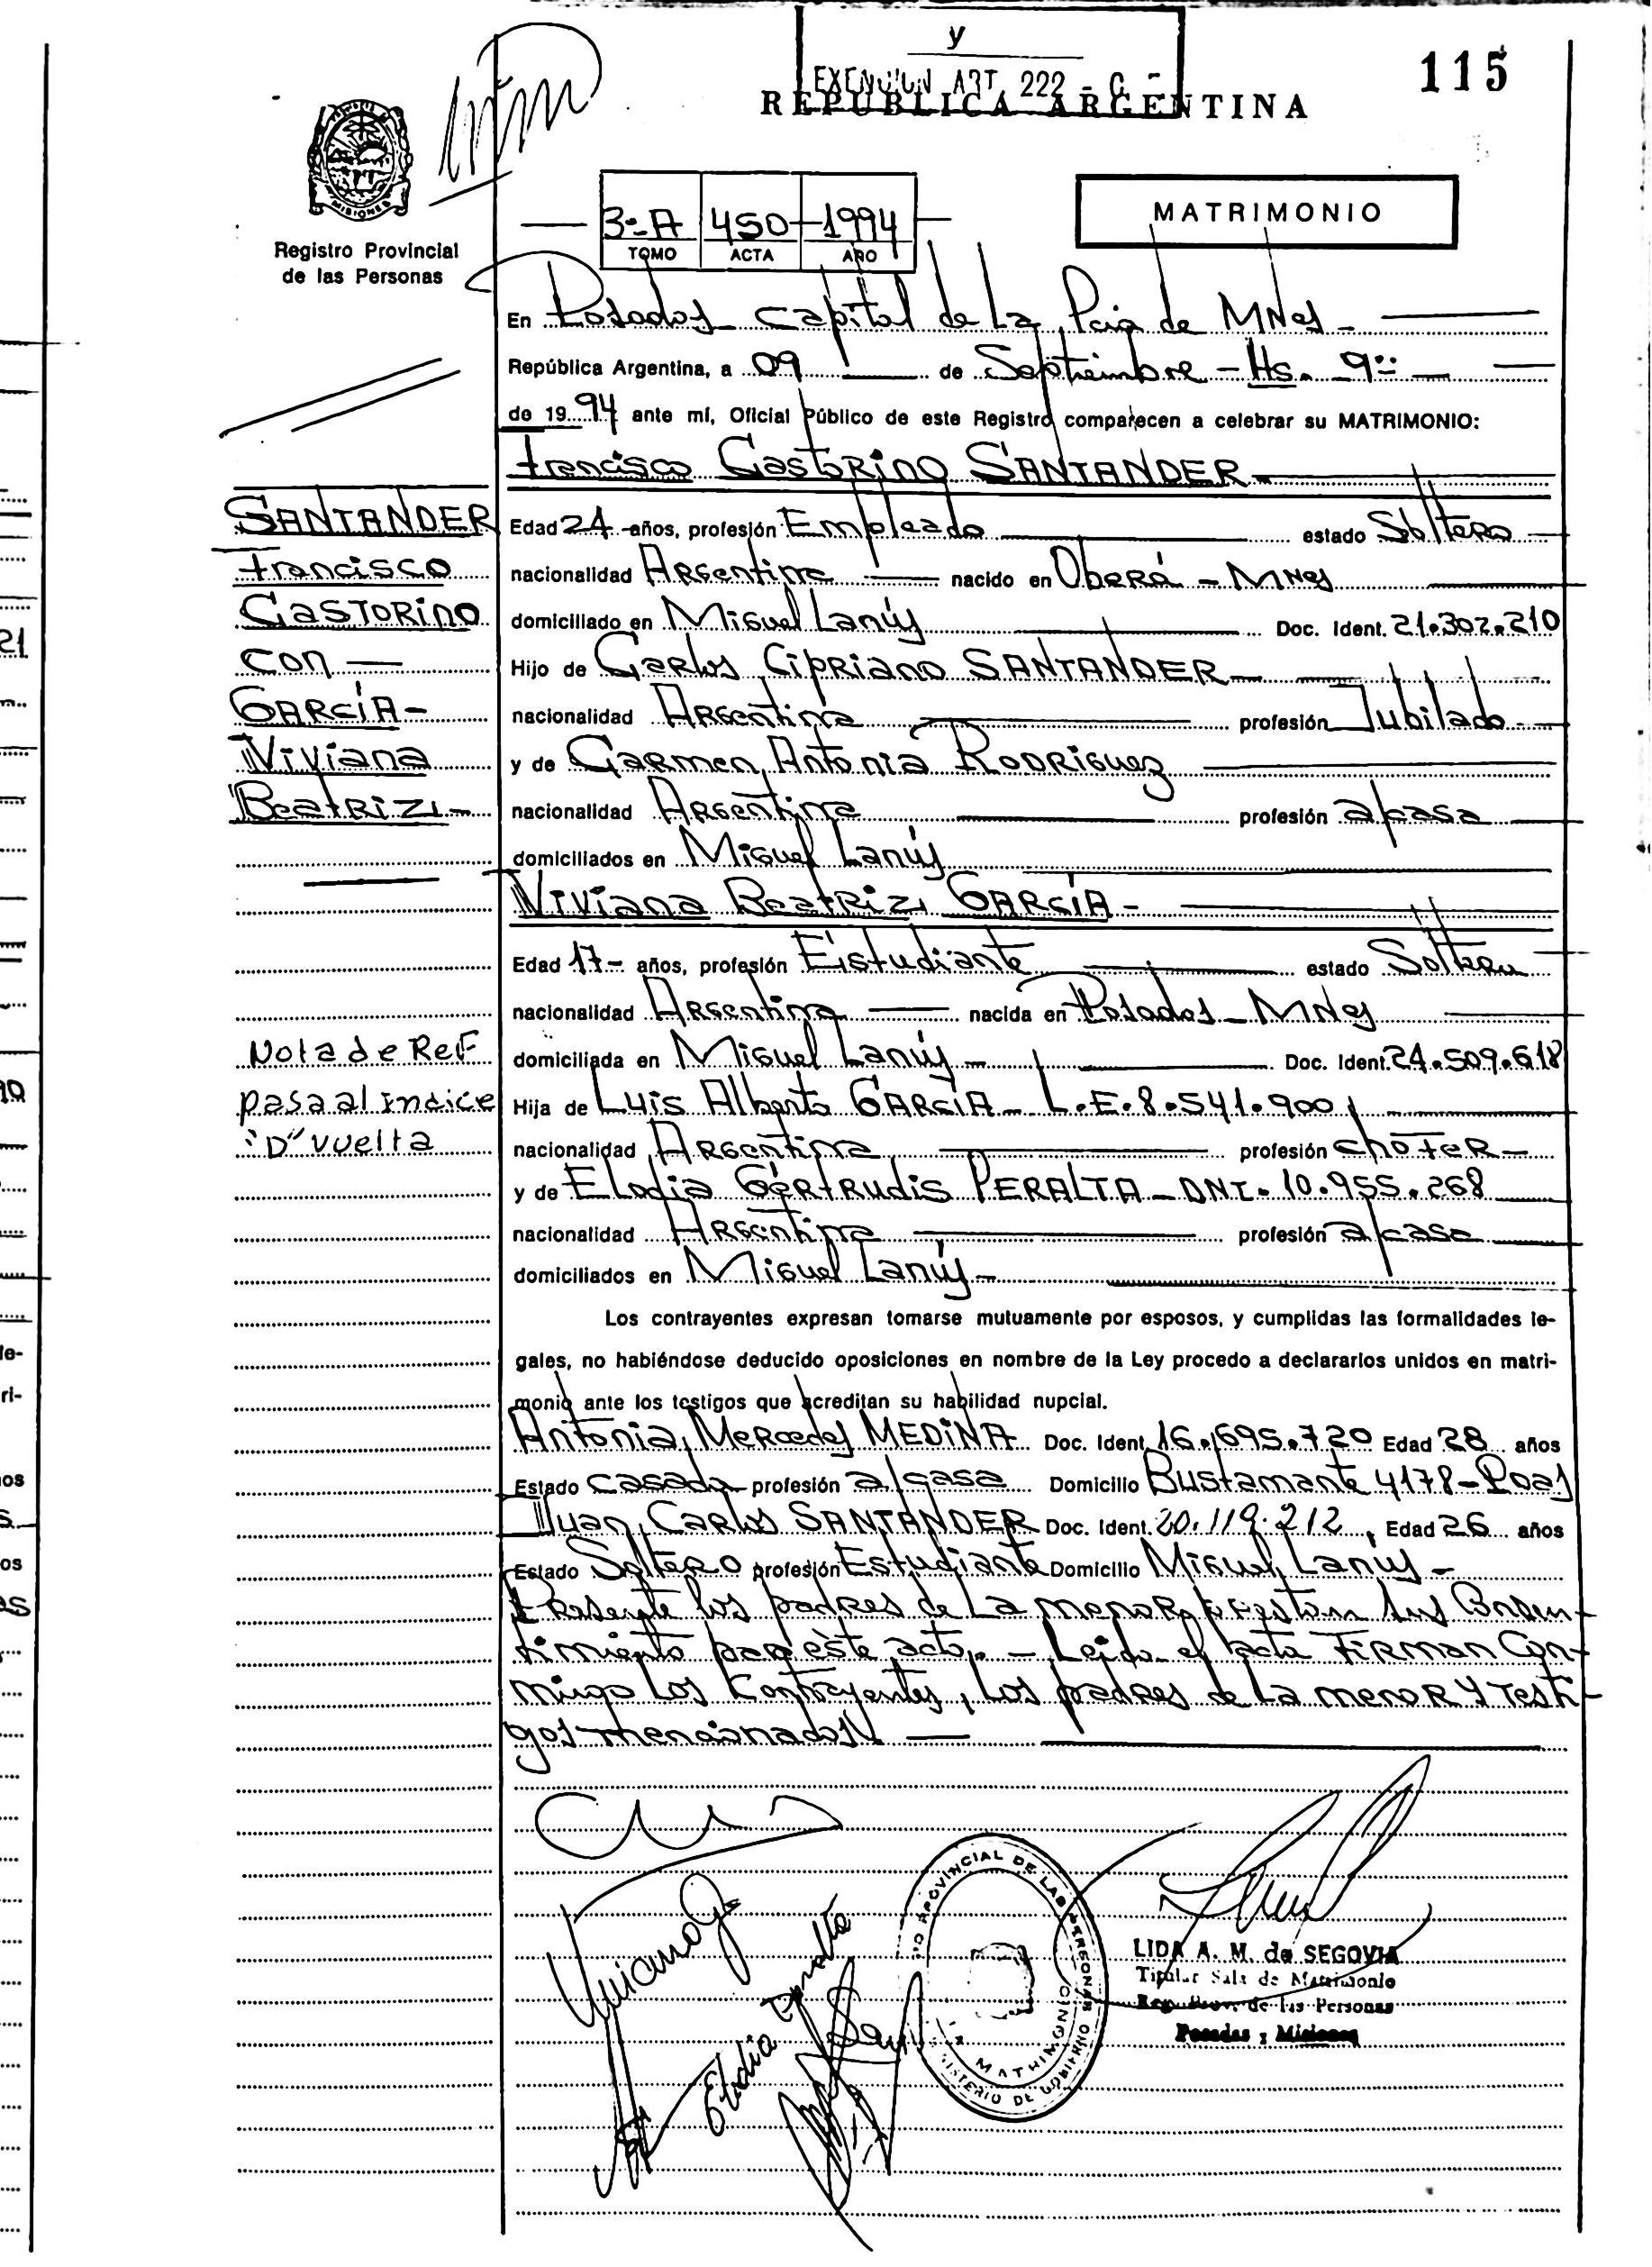 y
EXENCION ART. 222 - C.
REPUBLICA ARGENTINA
115
MISIONES
Registro Provincial
de las Personas
3º A 450 1994
TOMO ACTA AÑO
MATRIMONIO
En Posadas Capital de La Pcia de MNes -
República Argentina, a 09 de Septiembre - Hs. 9:00 -
de 1994 ante mí, Oficial Público de este Registro comparecen a celebrar su MATRIMONIO:
Francisco Castorino SANTANDER -
SANTANDER
Francisco
Castorino
con -
GARCÍA -
Viviana
Beatriz -
Edad 24 - años, profesión Empleado estado Soltero
nacionalidad Argentina nacido en Oberá - MNes
domiciliado en Miguel Lanús Doc. Ident. 21.302.210
Hijo de Carlos Cipriano SANTANDER -
nacionalidad Argentina profesión Jubilado
y de Carmen Antonia Rodriguez
nacionalidad Argentina profesión a/casa
domiciliados en Miguel Lanús
Viviana Beatriz GARCÍA -
Edad 17 - años, profesión Estudiante estado Soltera
nacionalidad Argentina nacida en Posadas - MNes
domiciliada en Miguel Lanús - Doc. Ident. 24.509.618
Hija de Luis Alberto GARCÍA - L.E. 8.541.900
nacionalidad Argentina profesión choFeR -
y de Elodia Gertrudis PERALTA - DNI. 10.955.268
nacionalidad Argentina profesión a/casa
domiciliados en Miguel Lanús -
Nota de Ref
pasa al indice
"D" vuelta
Los contrayentes expresan tomarse mutuamente por esposos, y cumplidas las formalidades le-
gales, no habiéndose deducido oposiciones en nombre de la Ley procedo a declararlos unidos en matri-
monio ante los testigos que acreditan su habilidad nupcial.
Antonia Mercedes MEDINA Doc. Ident. 16.695.720 Edad 28 años
Estado Casada profesión a/casa Domicilio Bustamante 4178 - Pdas
Juan Carlos SANTANDER Doc. Ident. 20.119.212 Edad 26 años
Estado Soltero profesión Estudiante Domicilio Miguel Lanús -
Presente los padres de La menor prestan sus Consen-
timiento para éste acto. - Leida el acta Firman Con-
migo Los Contrayentes, Los padres de La menor y Testi-
gos mencionados. -
Viviana G
Elodia Peralta
PROVINCIAL DE LAS PERSONAS
MATRIMONIO
MINISTERIO DE GOBIERNO
LIDA A. M. de SEGOVIA
Titular Sala de Matrimonio
Reg. Prov. de las Personas
Posadas : Misiones